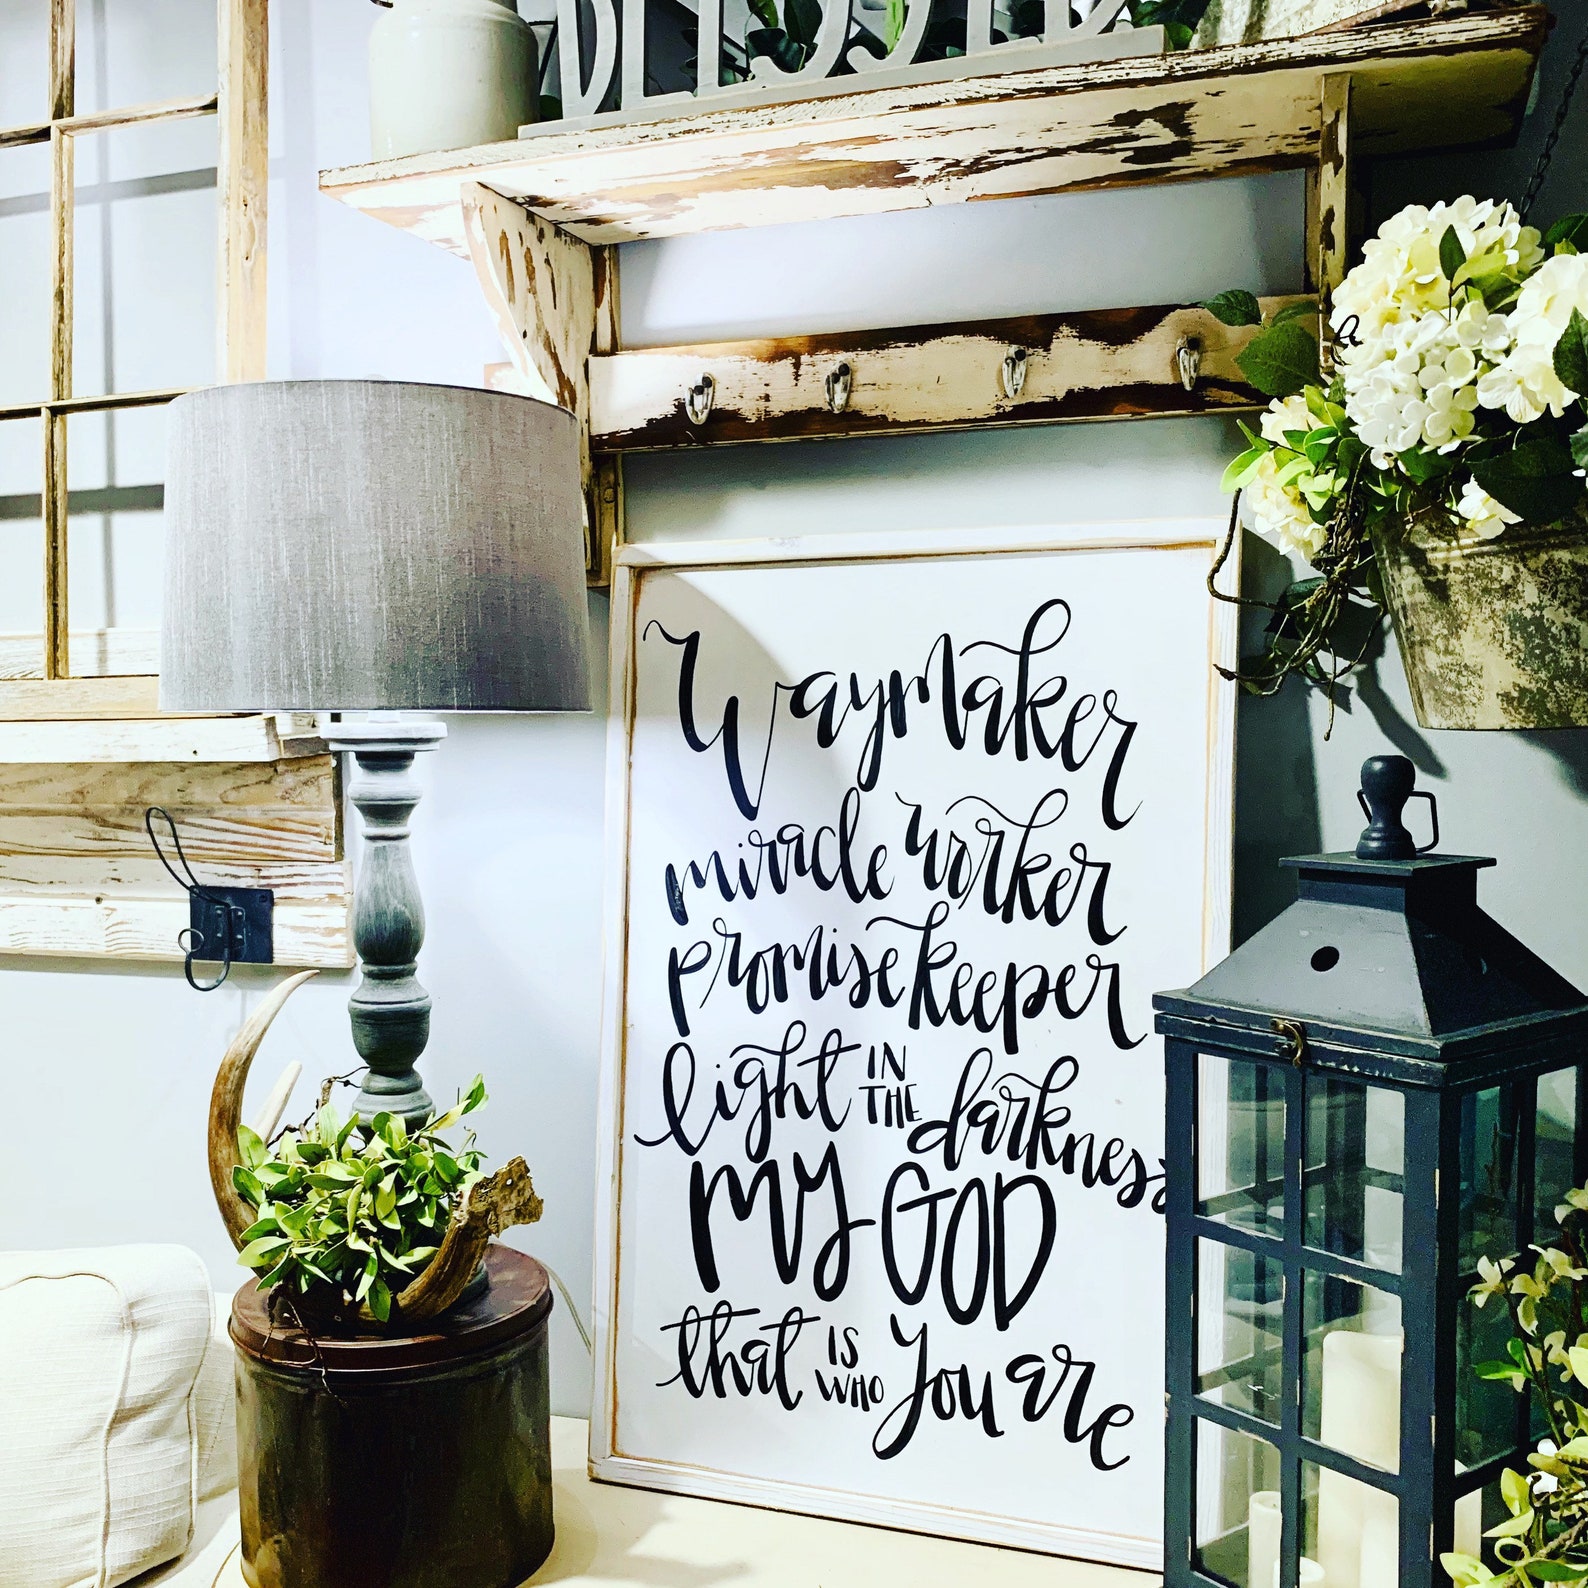 BLESSED
Waymaker
miracle worker
promise keeper
light IN THE darkness
MY GOD
that IS WHO You are